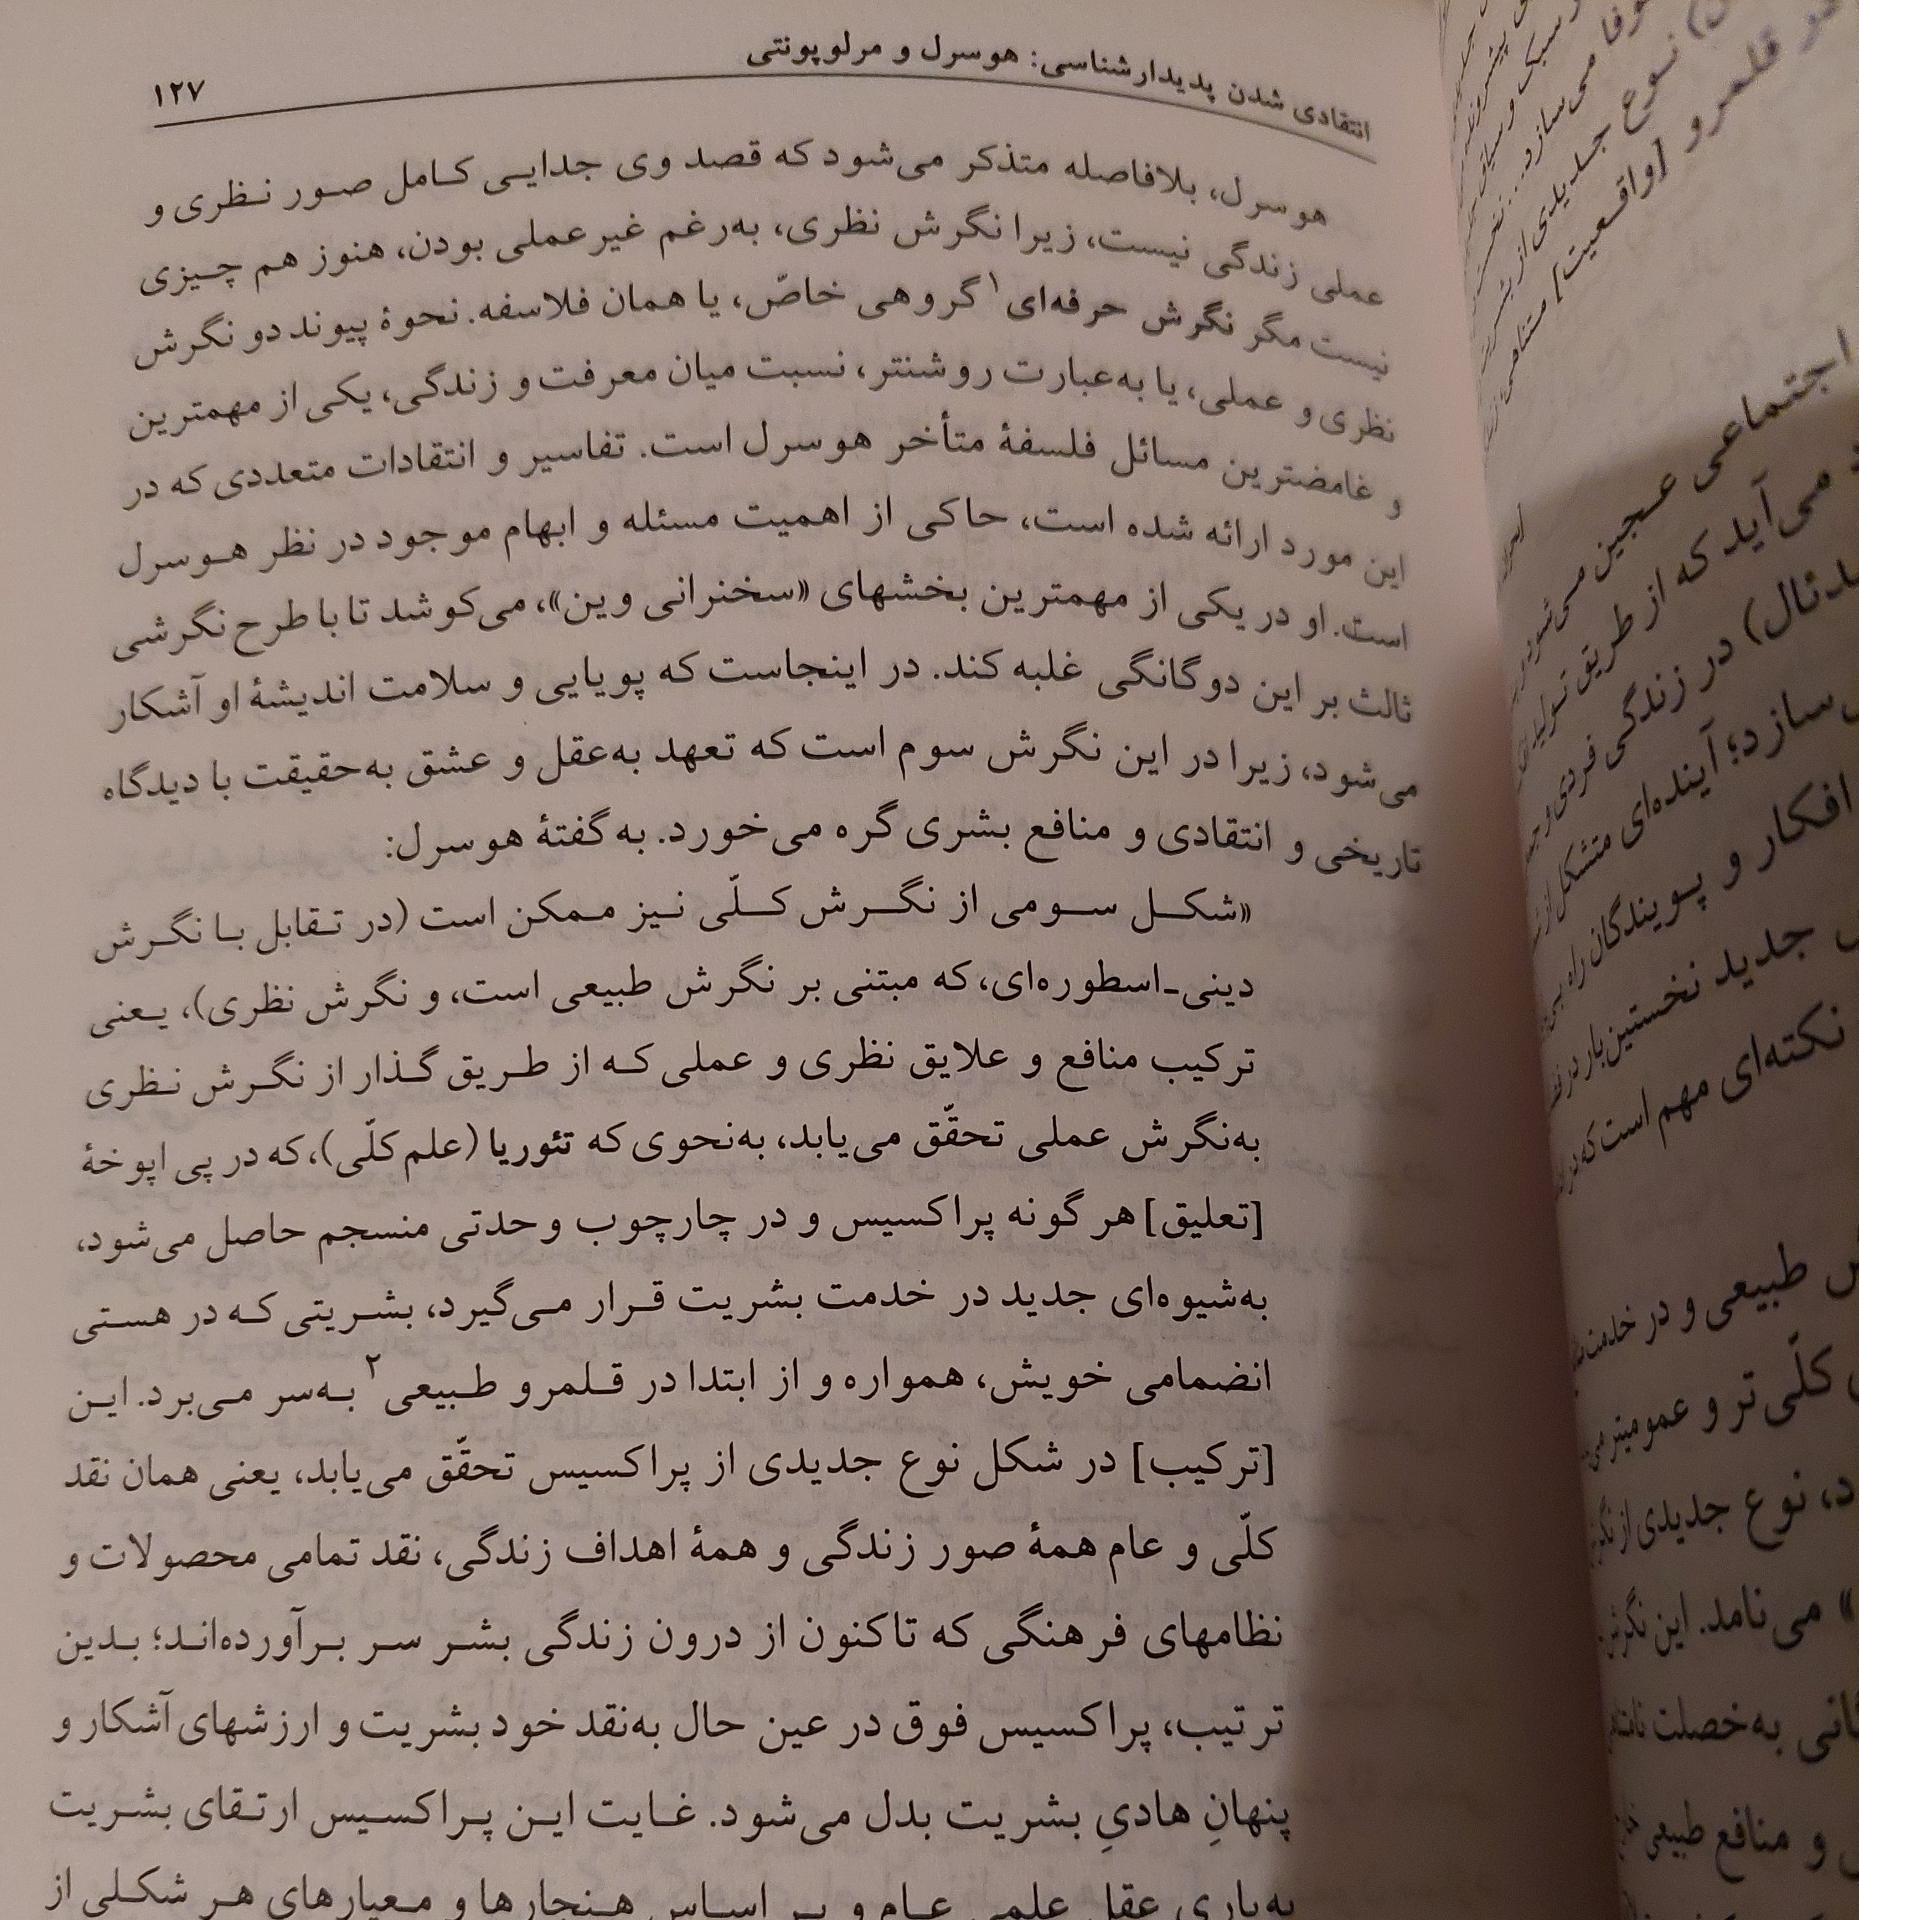 انتقادی شدن پدیدارشناسی: هوسرل و مرلوپونتی ۱۲۷
هوسرل، بلافاصله متذکر می‌شود که قصد وی جدایی کامل صور نظری و
عملی زندگی نیست، زیرا نگرش نظری، به‌رغم غیرعملی بودن، هنوز هم چیزی
نیست مگر نگرش حرفه‌ای۱ گروهی خاصّ، یا همان فلاسفه. نحوهٔ پیوند دو نگرش
نظری و عملی، یا به‌عبارت روشنتر، نسبت میان معرفت و زندگی، یکی از مهمترین
و غامضترین مسائل فلسفهٔ متأخر هوسرل است. تفاسیر و انتقادات متعددی که در
این مورد ارائه شده است، حاکی از اهمیت مسئله و ابهام موجود در نظر هوسرل
است. او در یکی از مهمترین بخشهای «سخنرانی وین»، می‌کوشد تا با طرح نگرشی
ثالث بر این دوگانگی غلبه کند. در اینجاست که پویایی و سلامت اندیشهٔ او آشکار
می‌شود، زیرا در این نگرش سوم است که تعهد به‌عقل و عشق به‌حقیقت با دیدگاه
تاریخی و انتقادی و منافع بشری گره می‌خورد. به گفتهٔ هوسرل:
«شکل سومی از نگرش کلّی نیز ممکن است (در تقابل با نگرش
دینی-اسطوره‌ای، که مبتنی بر نگرش طبیعی است، و نگرش نظری)، یعنی
ترکیب منافع و علایق نظری و عملی که از طریق گذار از نگرش نظری
به‌نگرش عملی تحقّق می‌یابد، به‌نحوی که تئوریا (علم کلّی)، که در پی اپوخهٔ
[تعلیق] هر گونه پراکسیس و در چارچوب وحدتی منسجم حاصل می‌شود،
به‌شیوه‌ای جدید در خدمت بشریت قرار می‌گیرد، بشریتی که در هستی
انضمامی خویش، همواره و از ابتدا در قلمرو طبیعی۲ به‌سر می‌برد. این
[ترکیب] در شکل نوع جدیدی از پراکسیس تحقّق می‌یابد، یعنی همان نقد
کلّی و عام همهٔ صور زندگی و همهٔ اهداف زندگی، نقد تمامی محصولات و
نظامهای فرهنگی که تاکنون از درون زندگی بشر سر برآورده‌اند؛ بدین
ترتیب، پراکسیس فوق در عین حال به‌نقد خود بشریت و ارزشهای آشکار و
پنهانِ هادیِ بشریت بدل می‌شود. غایت این پراکسیس ارتقای بشریت
به‌یاری عقل علمی عام و بر اساس هنجارها و معیارهای هر شکلی از
قلمرو [واقعیت] متناهی
اجتماعی عجین می‌شود
می‌آید که از طریق تولید
در زندگی فردی و
سازد؛ آینده‌ای متشکل از
افکار و پویندگان راه
جدید نخستین‌بار در
نکته‌ای مهم است که در
طبیعی و در خدمت
کلّی‌تر و عمومیتر
نوع جدیدی از
می‌نامد. این نگرش
به‌خصلت
و منافع طبیعی